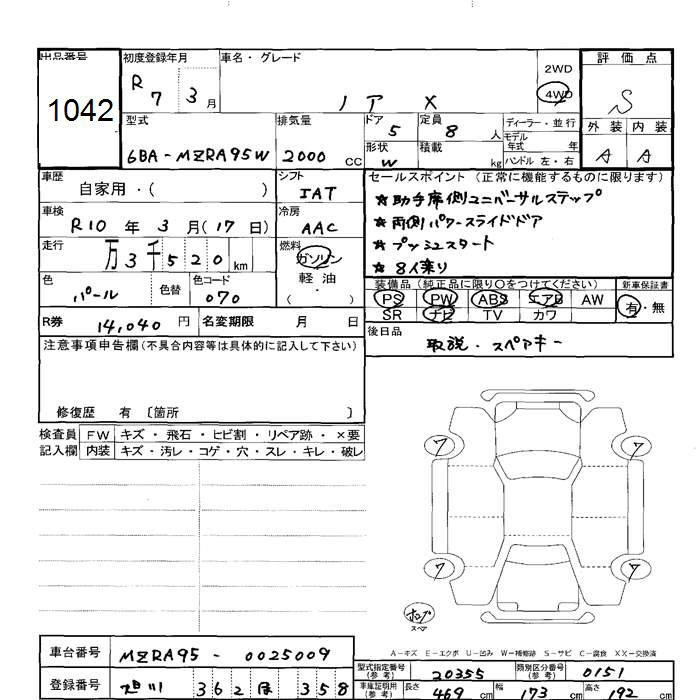 出品番号 初度登録年月 車名・グレード 2WD 評価点
1042 R 7 3月 ノア X 4WD S
型式 排気量 ドア 5 定員 8 人 ディーラー・並行 外装 内装
モデル年式 年
6BA-MZRA95W 2000 CC 形状 W 積載 kg ハンドル 左・右 A A
車歴 自家用・( ) シフト IAT セールスポイント (正常に機能するものに限ります)
車検 R10 年 3 月(17 日) 冷房 AAC
★助手席側ユニバーサルステップ
★両側パワースライドドア
走行 万 3千520 km 燃料 ガソリン
★プッシュスタート
軽油
★8人乗り
色 パール 色替 色コード 070 ( )
装備品 (純正品に限り〇をつけてください) 新車保証書
PS PW ABS エアB AW 有・無
SR ナビ TV カワ
R券 14,040 円 名変期限 月 日
後日品 取説・スペアキー
注意事項申告欄(不具合内容等は具体的に記入して下さい)
修復歴 有 〔箇所 〕
検査員 FW キズ・飛石・ヒビ割・リペア跡・×要
記入欄 内装 キズ・汚レ・コゲ・穴・スレ・キレ・破レ
ワ ワ
ワ ワ
スペア
A-キズ E-エクボ U-凹み W-補修跡 S-サビ C-腐食 XX-交換済
車台番号 MZRA95-0025009
型式指定番号(参考) 20355 類別区分番号(参考) 0151
登録番号 旭川 362 ほ 358
車庫証明用(参考) 長さ 469 cm 幅 173 cm 高さ 192 cm